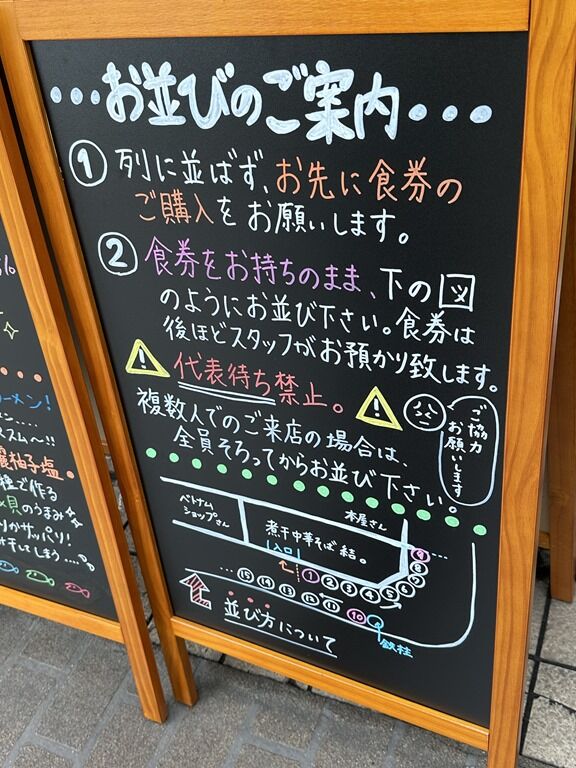 ・・・お並びのご案内・・・
① 列に並ばず、お先に食券の
ご購入をお願いします。
② 食券をお持ちのまま、下の図
のようにお並び下さい。食券は
後ほどスタッフがお預かり致します。
代表待ち禁止。
複数人でのご来店の場合は、
全員そろってからお並び下さい。
ご協力
お願いします
ベトナム
ショップさん
本屋さん
煮干中華そば 結。
入口
① ② ③ ④ ⑤ ⑥
⑦
⑧
⑨
⑮ ⑭ ⑬ ⑫ ⑪ ⑩
鉄柱
並び方について
ーメン!
スム〜!!
柚子塩
種で作る
貝のうまみ
りがサッパリ!